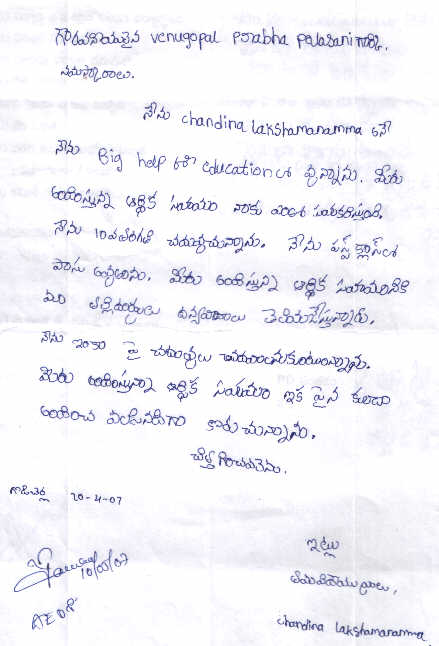 గౌరవనీయులైన venugopal Prabha Palasani గారికి,
నమస్కారాలు.
నేను chandina Lakshamanamma అనే
నేను Big help for education లో వున్నాను. మీరు
అందిస్తున్న ఆర్థిక సహాయం నాకు ఎంతో సహకరిస్తుంది.
నేను 10వతరగతి చదువుచున్నాను. నేను ఫస్ట్ క్లాస్ లో
పాసు అవ్వలను. మీరు అందిస్తున్న ఆర్థిక సహాయానికి
మా తల్లిదండ్రులు ధన్యవాదాలు తెలియచేస్తున్నారు.
నేను ఇంకా పై చదువులు చదవాలనుకుంటున్నాను.
మీరు అందిస్తున్న ఆర్థిక సహాయం ఇక పైన కూడా
అందించ వలసినదిగా కోరుచున్నాను.
చిత్తగించవలెను.
20-4-07
ఇట్లు
తమవిధేయులు,
chandina Lakshamanamma
10/05/07